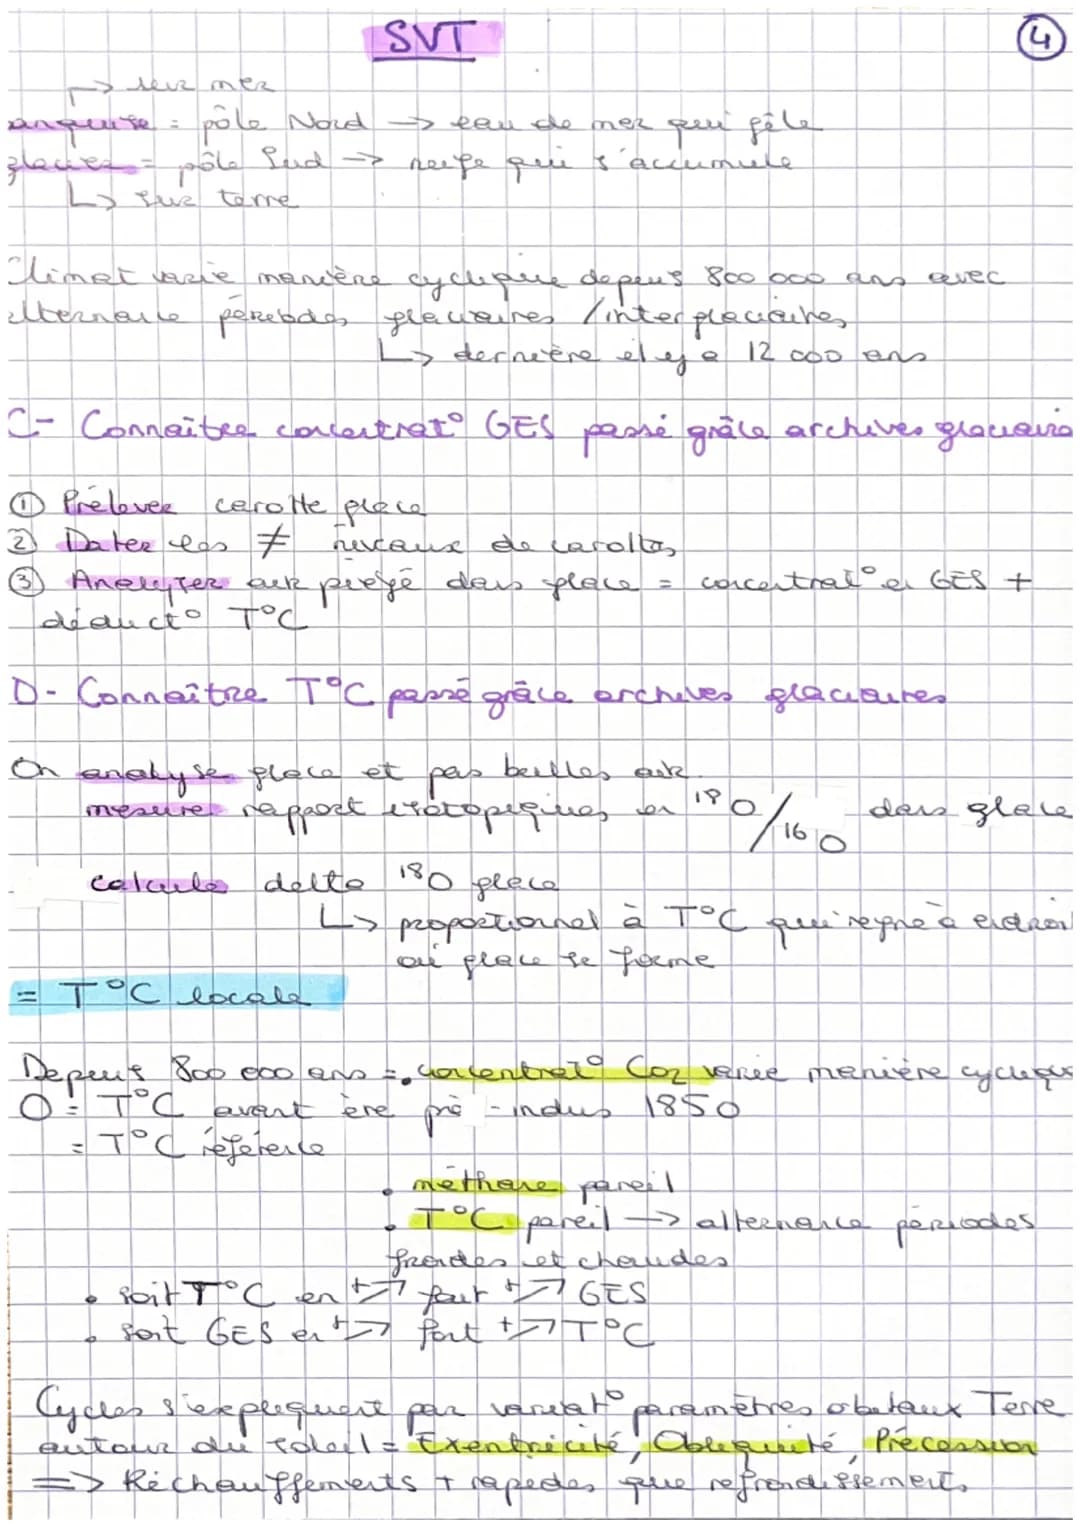 SVT
4
↳ sur mer
anquise = pôle Nord → eau de mer qui gèle
glacier = pôle Sud → neige qui s'accumule
↳ sur terre
Climat varie manière cyclique depuis 800 000 ans avec
alternance périodes glaciaires / interglaciaires
↳ dernière il y a 12 000 ans
C- Connaître concentrat° GES passé grâce archives glaciaires
① Prélever carotte glace
② Dater les ≠ niveaux de carottes
③ Analyser air piégé dans glace = concentrat° en GES +
déduct° T°C
D- Connaître T°C passé grâce archives glaciaires
On analyse glace et pas bulles air.
mesure rapport isotopiques en ¹⁸O/¹⁶O dans glace
calcule delta ¹⁸O glace
↳ proportionnel à T°C qui règne à endroit
où glace se forme
= T°C locale
Depuis 800 000 ans = • concentrat° CO₂ varie manière cyclique
O = T°C avant ère pré-indus 1850
= T°C référence
• méthane pareil
• T°C pareil → alternance périodes
froides et chaudes
• soit T°C en +↗ fait +↗ GES
• soit GES en +↗ font +↗ T°C
Cycles s'expliquent par variat° paramètres orbitaux Terre
autour du soleil = Exentricité, Obliquité, Précession
=> Réchauffements + rapides que refroidissements